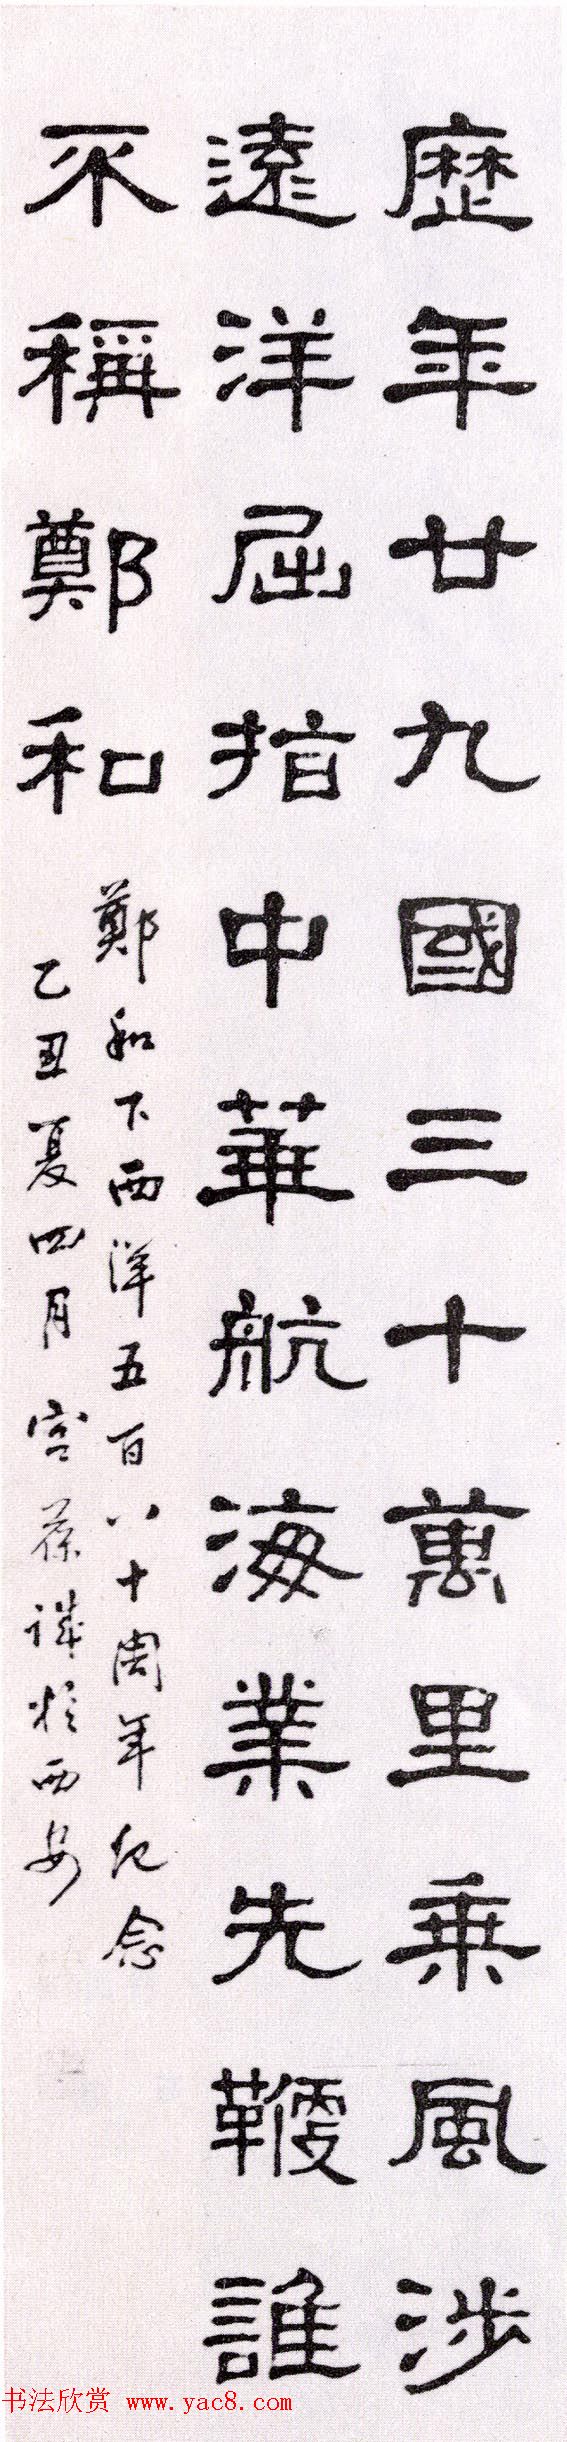 歷年廿九國三十萬里乗風涉
遠洋屈指中華航海業先鞭誰
不稱鄭和
鄭和下西洋五百八十周年紀念
乙丑夏四月宫葆諴於西安
书法欣赏 www.yac8.com